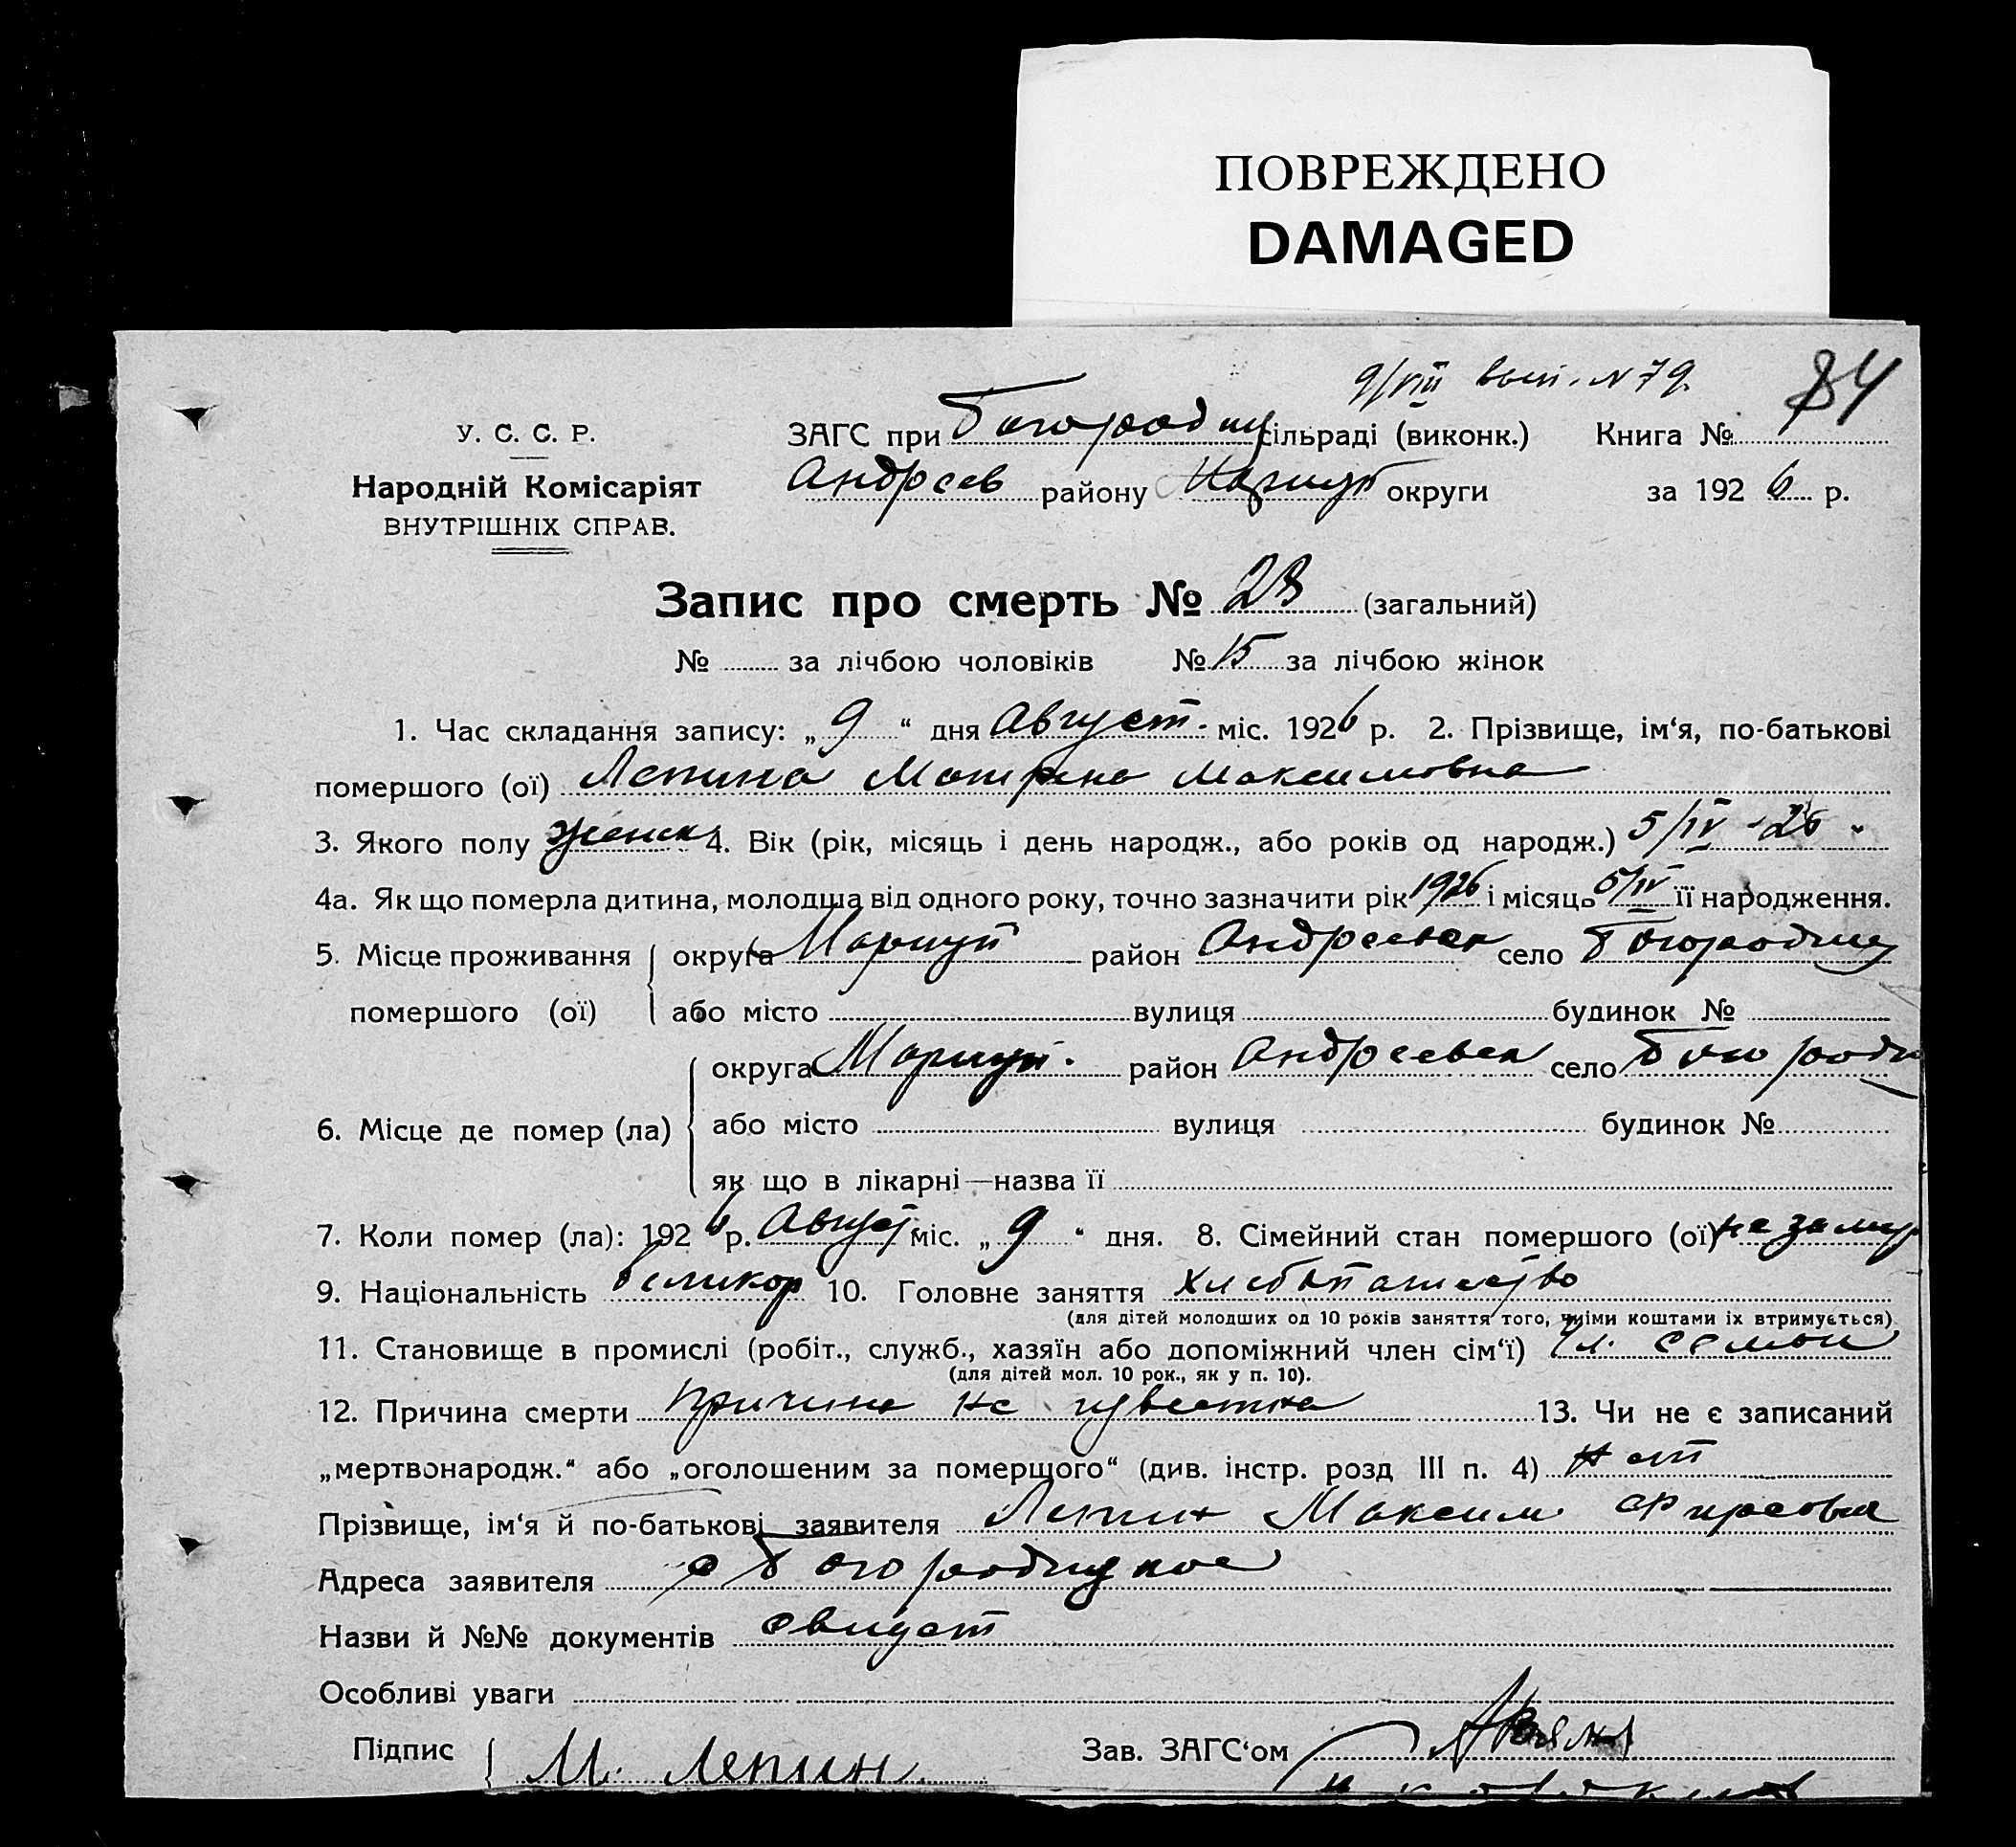 ПОВРЕЖДЕНО
DAMAGED
9/VIII вып. N 79.
84
У. С. С. Р.
Народній Комісаріят
ВНУТРІШНІХ СПРАВ.
ЗАГС при Богородиц сільраді (виконк.) Книга №
Андреев району Мариуп округи за 1926 р.
Запис про смерть № 28 (загальний)
№ за лічбою чоловіків № 15 за лічбою жінок
1. Час складання запису: „9“ дня Август. міс. 1926 р. 2. Прізвище, ім‘я, по-батькові
помершого (ої) Лепина Матрена Максимовна
3. Якого полу женск 4. Вік (рік, місяць і день народж., або років од народж.) 5/IV - 26
4а. Як що померла дитина, молодша від одного року, точно зазначити рік 1926 і місяць 5/IV її народження.
5. Місце проживання округа Мариуп район Андреевск село Богородиц
помершого (ої) або місто вулиця будинок №
округа Мариуп. район Андреевск село Богороди
6. Місце де помер (ла) або місто вулиця будинок №
як що в лікарні—назва її
7. Коли помер (ла): 1926 р. Август міс. „9“ дня. 8. Сімейний стан помершого (ої) не замуж
9. Національність великор 10. Головне заняття хлебопашество
(для дітей молодших од 10 років заняття того, чиїми коштами їх втримується)
11. Становище в промислі (робіт., служб., хазяїн або допоміжний член сім‘ї) чл. семьи
(для дітей мол. 10 рок., як у п. 10).
12. Причина смерти причина не известна 13. Чи не є записаний
„мертвонародж.“ або „оголошеним за помершого“ (див. інстр. розд III п. 4) нет
Прізвище, ім‘я й по-батькові заявителя Лепин Максим Фирсович
Адреса заявителя с Богородицкое
Назви й №№ документів
Особливі уваги
Підпис М. Лепин Зав. ЗАГС‘ом